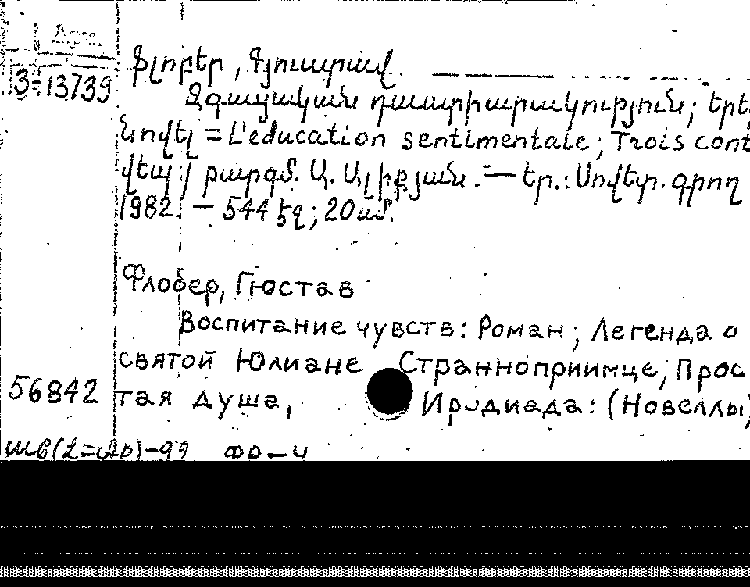 З-13739 Ֆլոբեր, Գյուստավ.
Զգացական դաստիարակություն; Երե
Նովել = L'education sentimentale; Trois cont
վեպ / թարգմ. Ա. Ալիքյան. — Եր.: Սովետ. գրող
1982. — 544 էջ; 20 սմ.
Флобер, Гюстав
Воспитание чувств: Роман; Легенда о
святой Юлиане Странноприимце; Прос
56842 тая душа, Иродиада: (Новеллы)